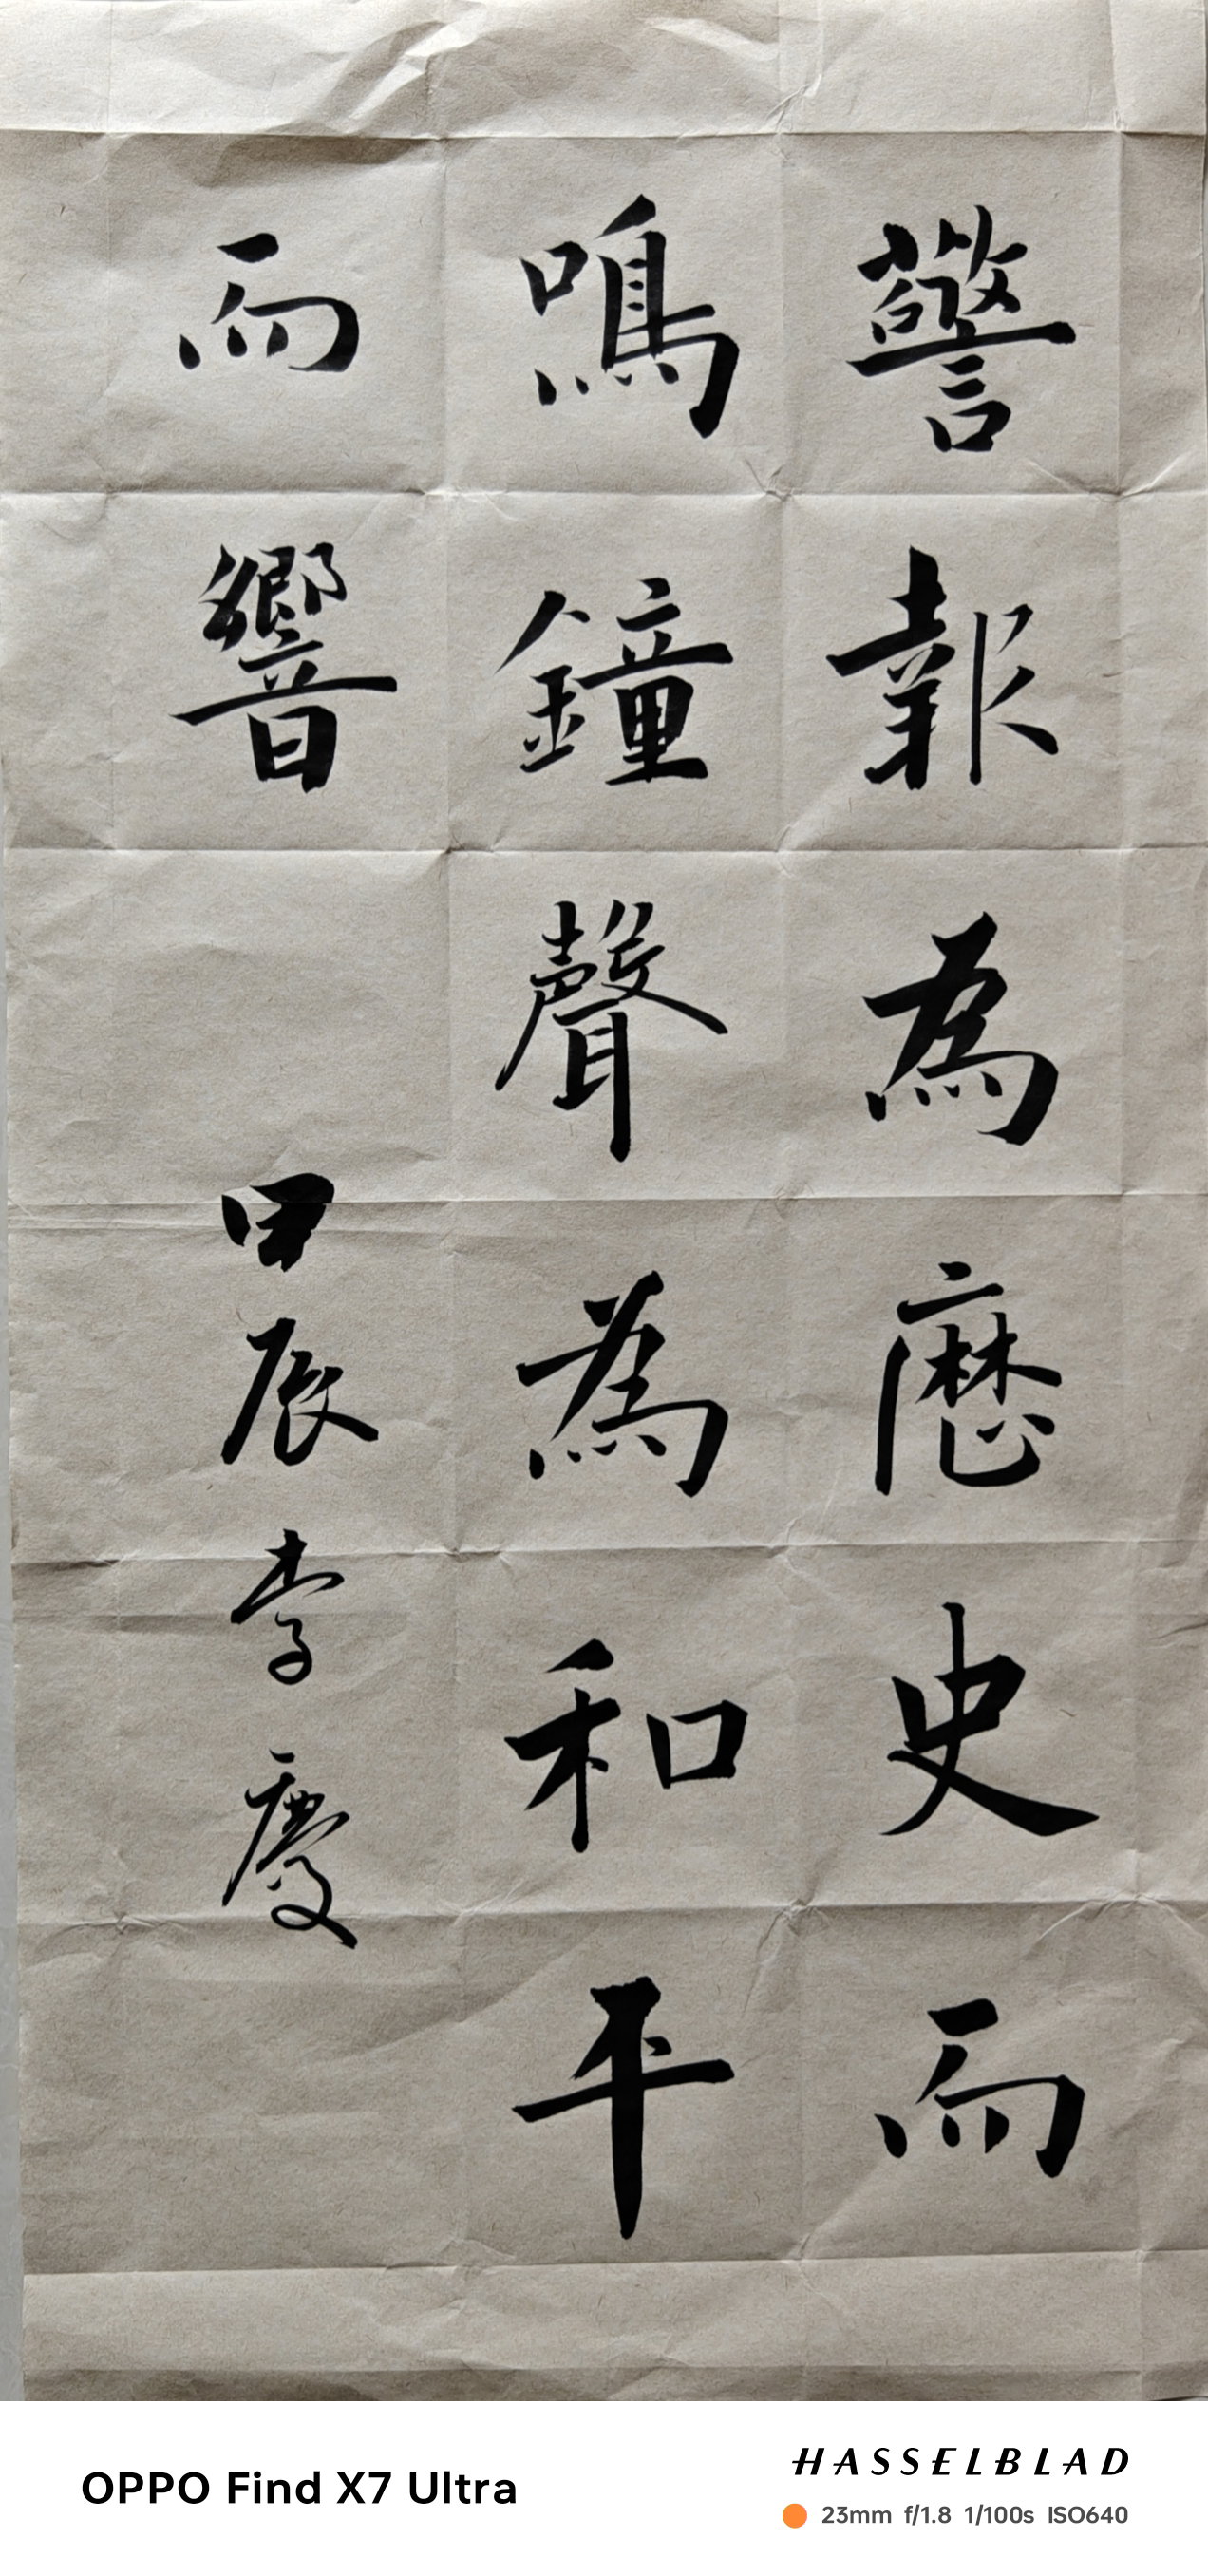 警報為歷史而
鳴鐘聲為和平
而響
甲辰李慶
OPPO Find X7 Ultra
HASSELBLAD
23mm f/1.8 1/100s ISO640